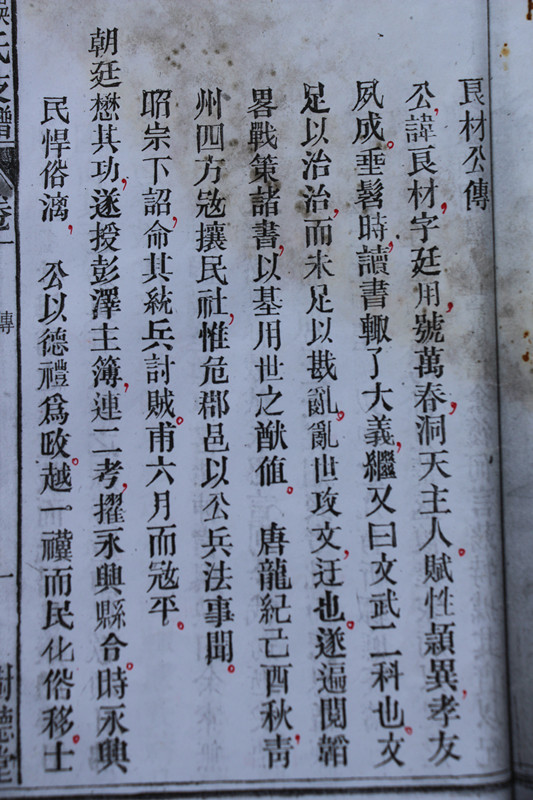 良材公傳
公,諱良材,字廷用,號萬春,洞天主人。賦性穎異,孝友
夙成。垂髫時,讀書輒了大義,繼又曰文武二科也。文
足以治治,而未足以戡亂。亂世攻文,迂也。遂遍閱韜
畧戰策諸書,以基用世之猷值。 唐龍紀己酉秋,靑
州四方宼攘民社,惟危郡邑以公兵法事聞。
昭宗下詔,命其統兵討賊。甫六月而宼平。
朝廷懋其功,遂授彭澤主簿,連二考,擢永興縣令。時永興
民悍俗漓, 公以德禮爲政。越一禩而民化俗移。士
氏支譜 卷一 傳 一 樹德堂